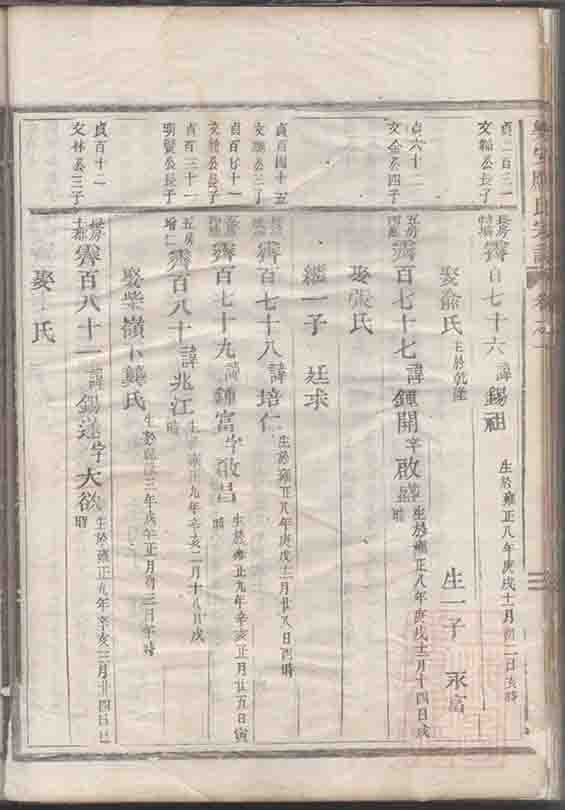 貞二百三一
文 公長子
長房
霽百七十六 諱錫祖 生於雍正八年庚戌十二月初二日亥時
娶俞氏 生於乾隆 生一子 永富
貞六十二
文金公四子
五房
霽百七十七 諱鍾開字啟盛 生於雍正八年庚戌十二月十四日戌時
娶張氏
繼一子 廷求
貞百四十五
文 公三子
霽百七十八 諱培仁 生於雍正八年庚戌十二月廿八日酉時
貞百七十一
文 公長子
霽百七十九 諱鍾富字啟昌 生於雍正九年辛亥正月廿五日寅時
貞百三十一
明賢公長子
五房
霽百八十 諱兆江 生於雍正九年辛亥二月十八日戌時
娶柴嶺卜龔氏 生於乾隆三年戊午正月初三日 時
貞百十二
文林公三子
霽百八十一 諱錫 字大欲 生於雍正九年辛亥三月廿四日巳時
娶 氏
氏宗譜